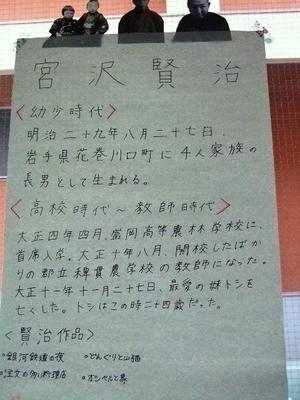 宮沢賢治
<幼少時代>
明治二十九年八月二十七日、
岩手県花巻川口町に4人家族の
長男として生まれる。
<高校時代～教師時代>
大正四年四月、盛岡高等農林学校に、
首席入学。大正十年八月、開校したばか
りの郡立稗貫農学校の教師になった。
大正十一年十一月二十七日、最愛の妹トシを
亡くした。トシはこの時二十四歳だった。
<賢治作品>
•銀河鉄道の夜 •どんぐりと山猫
•注文の多い料理店 •オツベルと象